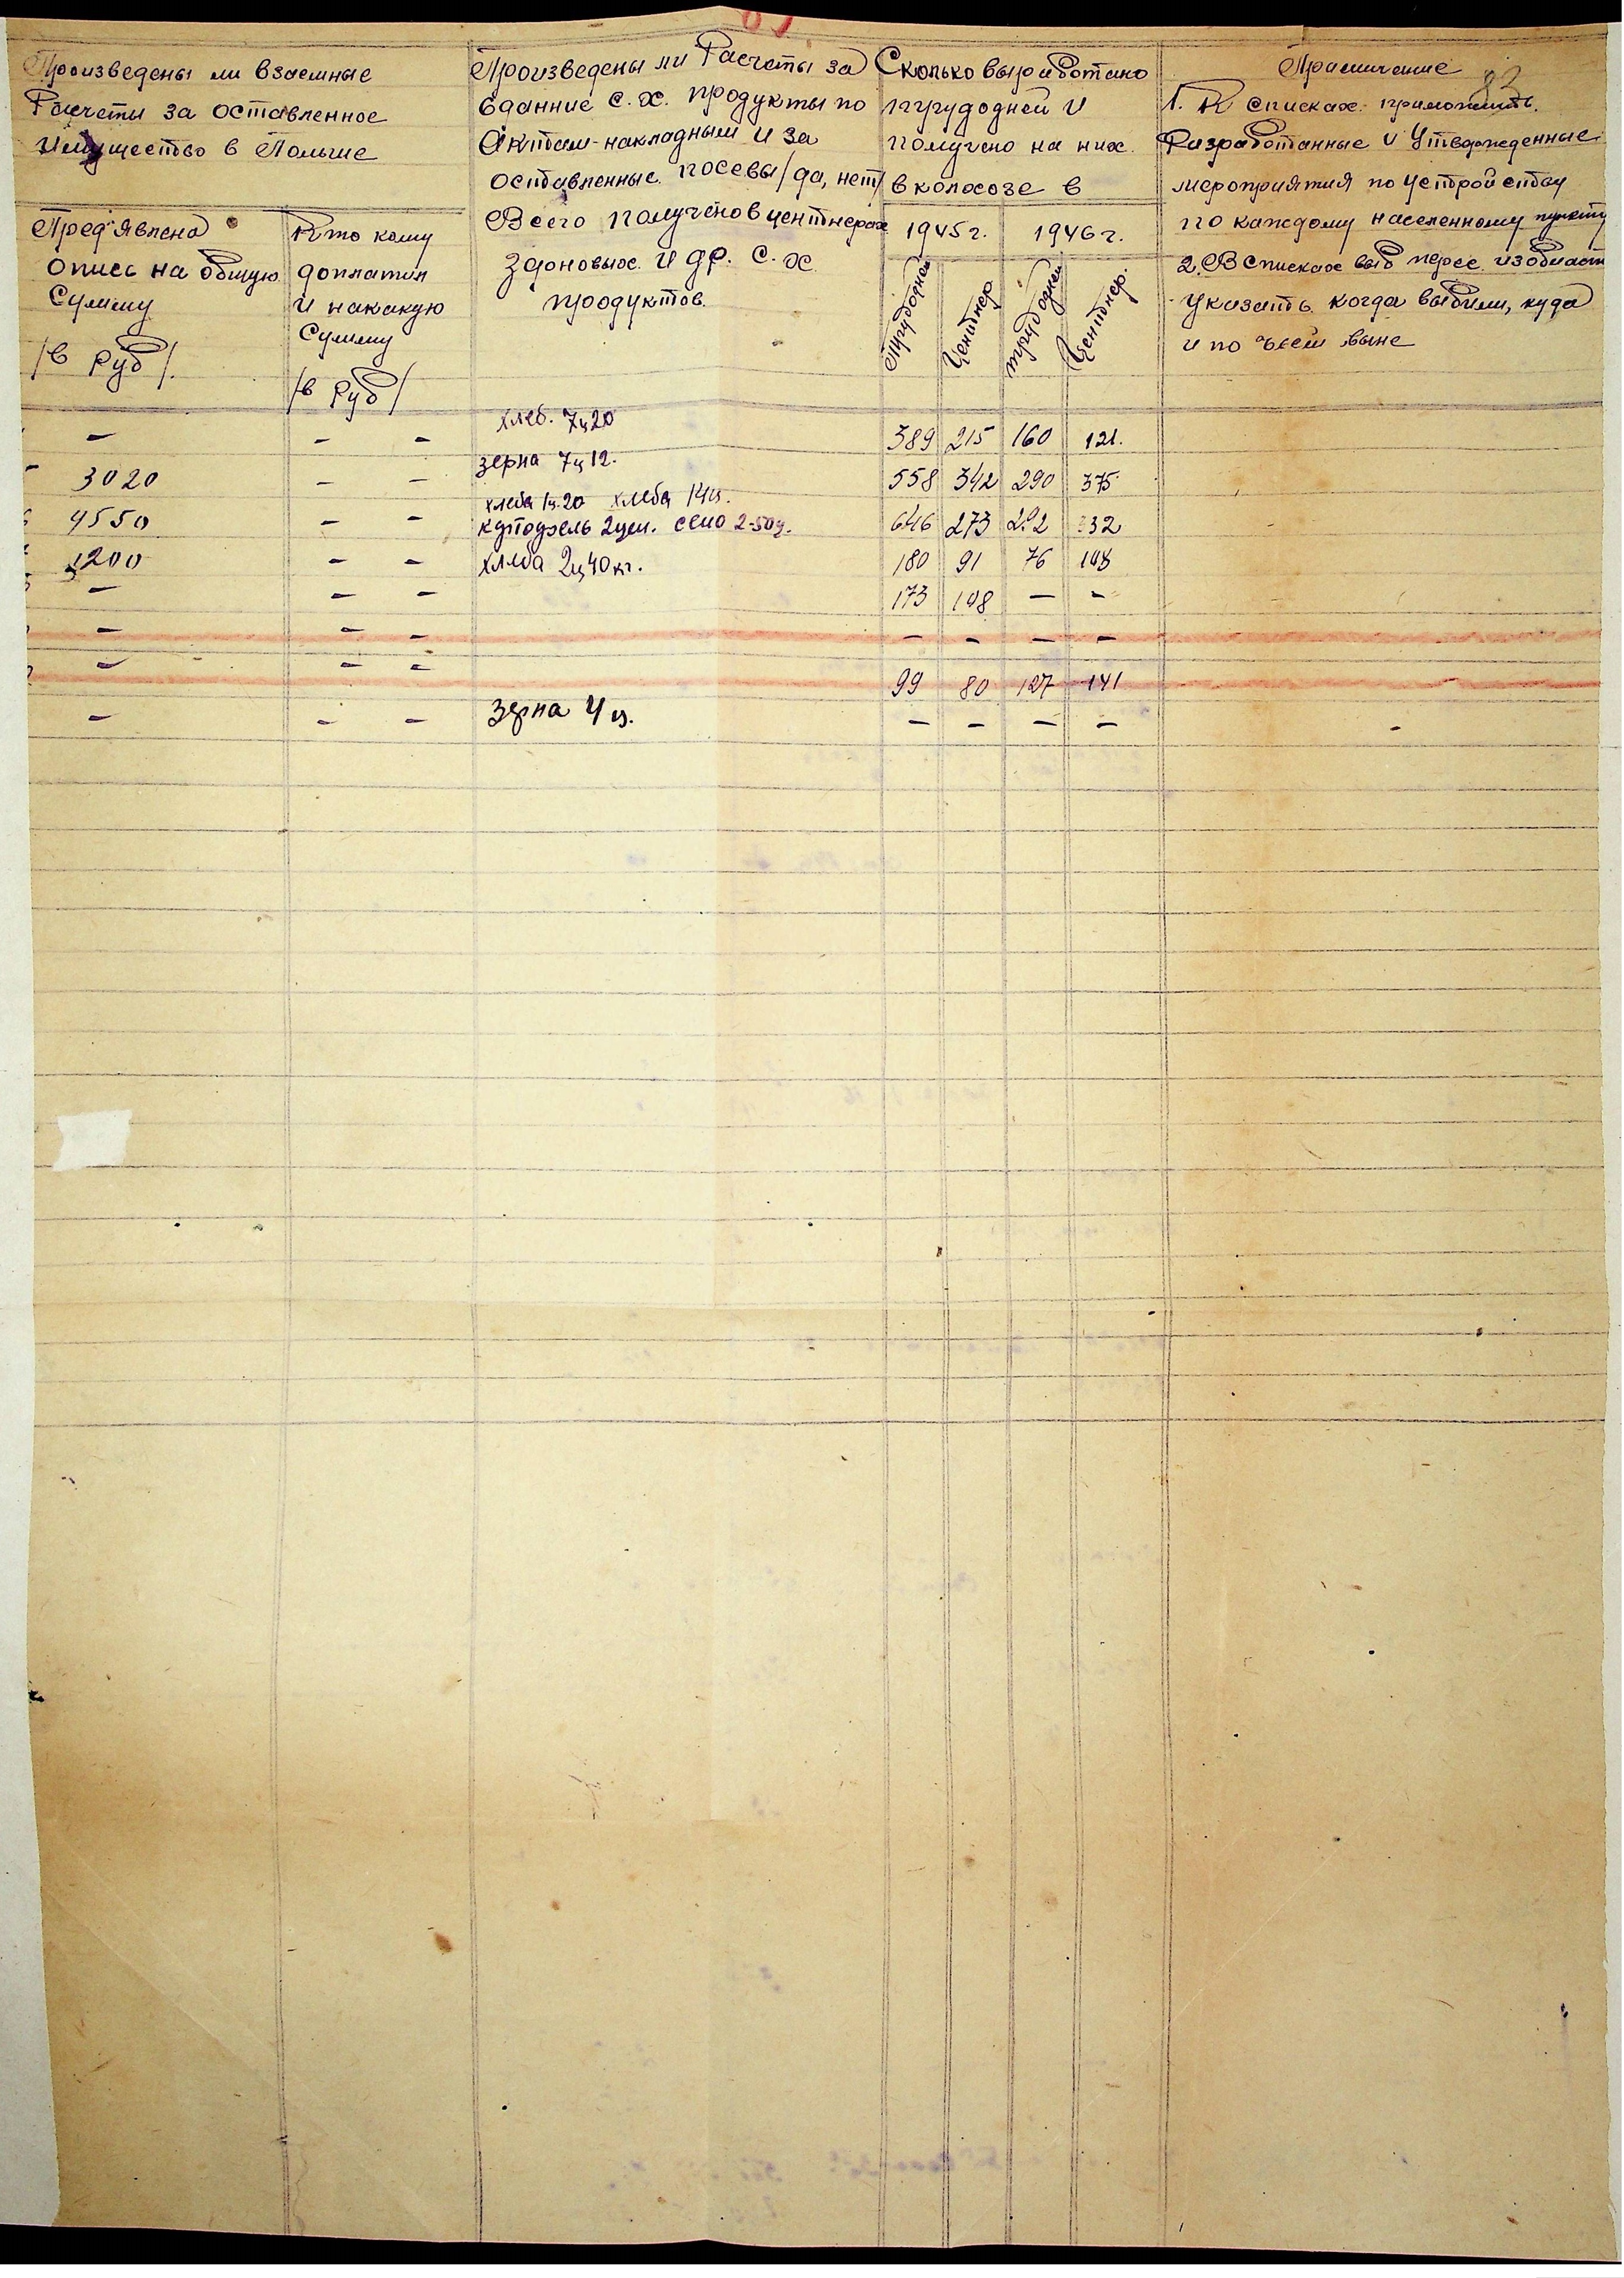 83
Произведены ли взаемные
Расчеты за оставленное
Имущество в Польше
Пред'явлена
опись на общую
Сумму
/в Руб/.
Кто кому
доплатил
и накакую
Сумму
/в Руб/
Произведены ли Расчеты за
сданние с. х. продукты по
Актам-накладным и за
оставленные посевы/да, нет/
Всего получено в центнерах
Зерновых. и др. с. х
продуктов.
Сколько выработано
трудодней и
получено на них.
в колхозе в
1945 г. 1946 г.
Трудодней Центнер трудодней Центнер.
Примичание
1. К списках приложить.
Разработанные и Утвержденные
мероприятия по устройству
по каждому населенному пункту
2. В списках выб перес. из области
указать когда выбили, куда
и по чьей выне
– – – хлеб. 7ц20 389 215 160 121.
3020 – – зерна 7ц12. 558 342 290 375
хлеба 1ц.20 хлеба 14ц.
4550 – – 2цен. сено 2-50ц. 646 273 332
1200 – – хлеба 2ц40кг. 180 91 76 108
– – – 173 108 – –
– – – – – – –
– – – 99 80 127 141
– – – зерна 4ц. – – – – –